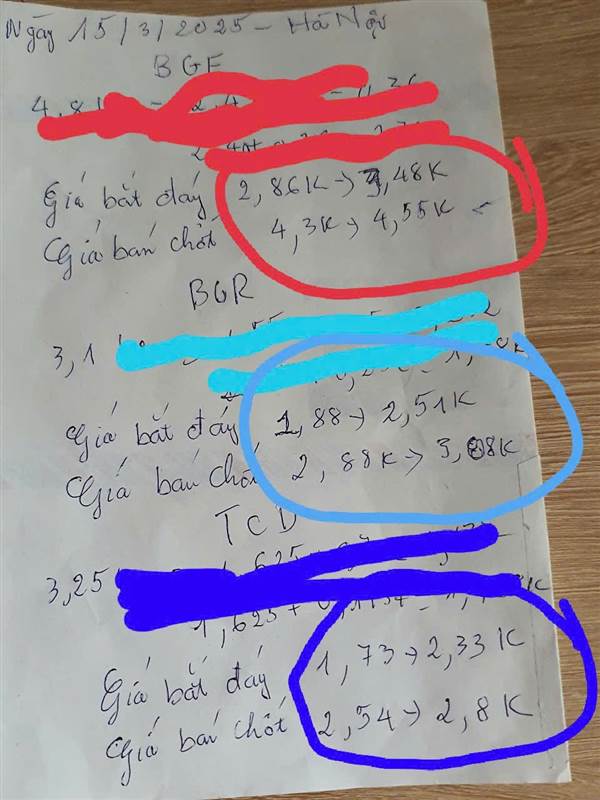 Ngày 15/3/2025 - Hà Nội
BGE
4,8
Giá bắt đáy 2,86K → 3,48K
Giá bán chốt 4,3K → 4,55K
BGR
3,1
Giá bắt đáy 1,88 → 2,51K
Giá bán chốt 2,88K → 3,08K
TCD
3,25
1,625 +
Giá bắt đáy 1,73 → 2,33K
Giá bán chốt 2,54 → 2,8K